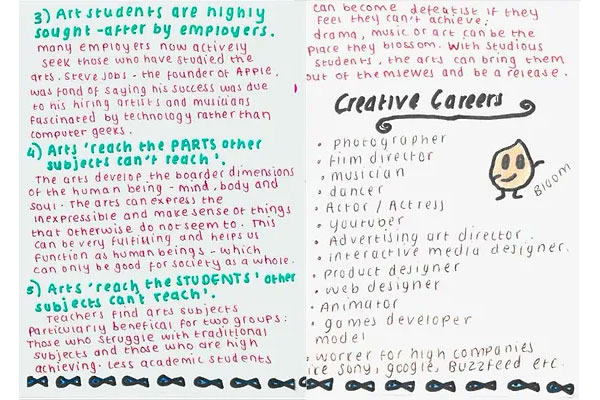 3) Art students are highly
sought-after by employers.
many employers now actively
seek those who have studied the
arts. Steve Jobs - the founder of Apple,
was fond of saying his success was due
to his hiring artists and musicians
fascinated by technology rather than
computer geeks.
4) Arts 'reach the PARTS other
subjects can't reach'.
The arts develop the boarder dimensions
of the human being - mind, body and
soul. The arts can express the
inexpressible and make sense of things
that otherwise do not seem to. This
can be very fulfilling and helps us
function as human beings - which
can only be good for society as a whole.
5) Arts 'reach the STUDENTS' other
subjects can't reach'.
Teachers find arts subjects
Particularly benefical for two groups:
Those who struggle with traditional
subjects and those who are high
achieving. Less academic students
can become defeatist if they
feel they can't achieve;
drama, music or art can be the
place they blossom. With studious
students, the arts can bring them
out of themselves and be a release.
Creative Careers
• photographer
• film director
• musician
• dancer
• Actor / Actress
• youtuber
• Advertising art director.
• interactive media designer.
• product designer
• web designer
• Animator
• games developer
model
• worker for high companies
like sony, google, Buzzfeed etc.
Bloom